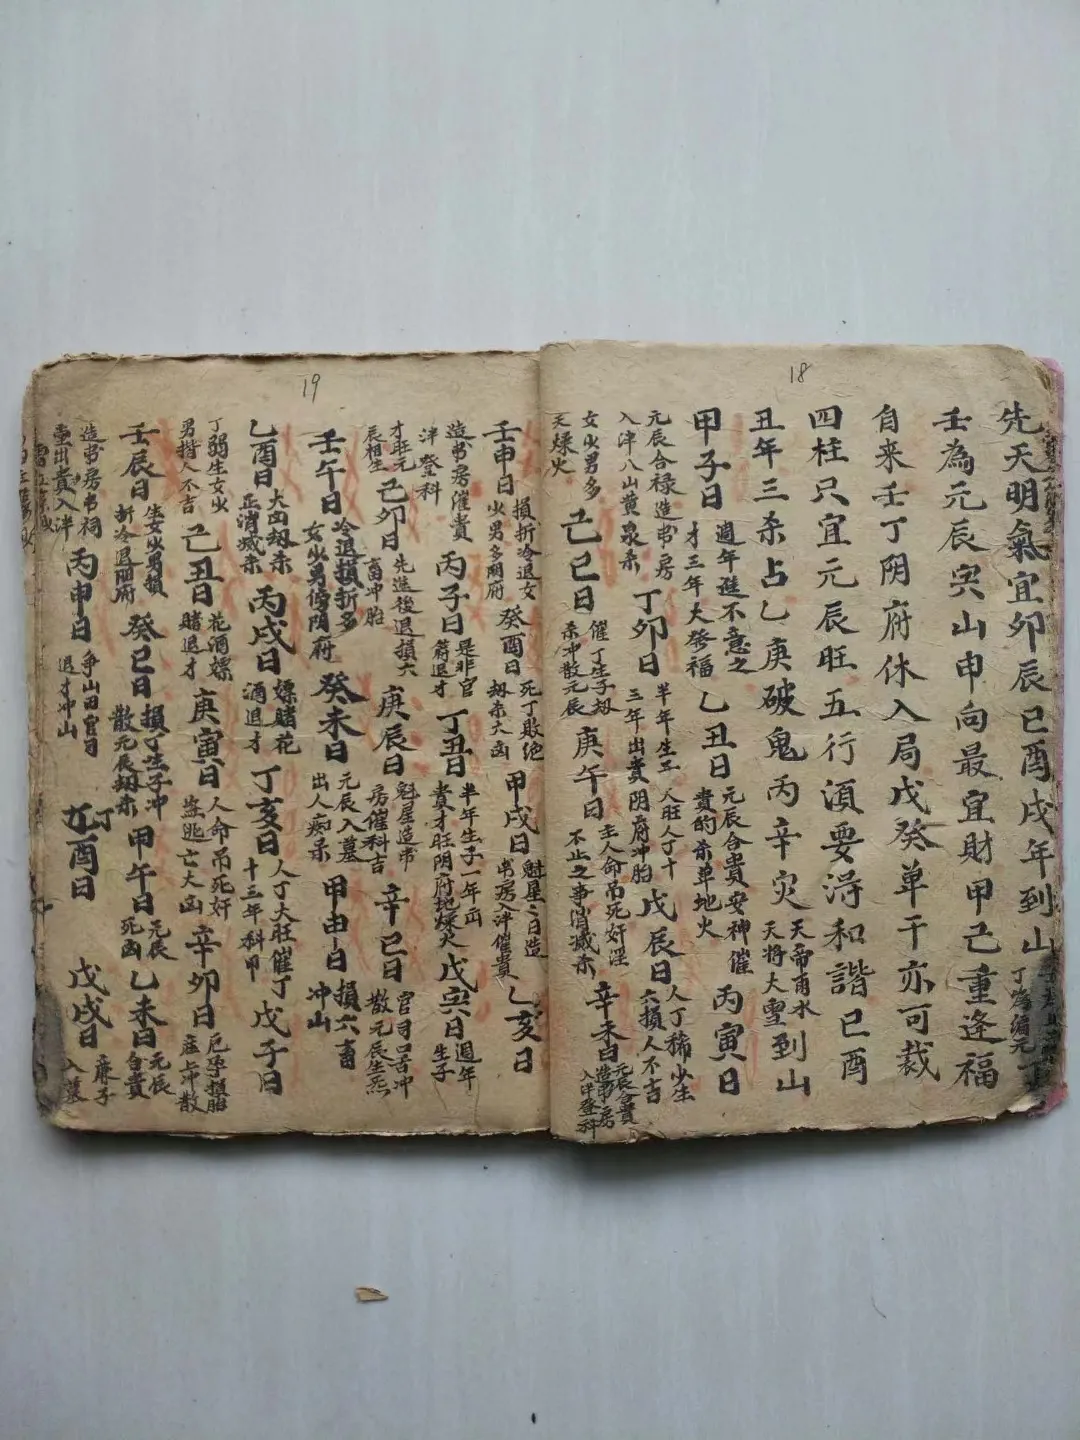 18
先天明氣宜卯辰巳酉戌年到山
壬為元辰寅山申向最宜財甲己重逢福
自来壬丁阴府休入局戊癸单干亦可裁
四柱只宜元辰旺五行須要得和諧巳酉
丑年三杀占乙庚破鬼丙辛灾
天将大聖到山
甲子日
週年進不意之
才三年大發福
乙丑日
元辰合貴安神催
貴的杀单地火
丙寅日
元辰合禄造书房
入泮八山黄泉杀
丁卯日
半年生子人旺人丁十
三年出貴阴府冲胎
戊辰日
人丁稀少生
六損人不吉
女火男多
天燥火
己巳日
催丁生子刼
杀冲散元辰
庚午日
主人命吊死奸淫
不止之事消滅杀
辛未日
元辰合貴
造书房
入泮登科
19
壬申日
損折冷退女
火男多阴府
癸酉日
死丁敗絶
刼杀大凶
甲戌日
魁星之日造
书房入泮催貴
乙亥日
造书房催貴
泮登科
丙子日
是非官
箭退才
丁丑日
半年生子一年凶
貴才旺阴府地燥火
戊寅日
週年
生子
才旺元
辰相生
己卯日
先進後退損六
畜冲胎
庚辰日
魁星造书
房催科吉
辛巳日
官司口舌冲
散元辰生炁
壬午日
冷退損折多
女火男傷阴府
癸未日
元辰入墓
出人痴呆
甲申日
損六畜
冲山
乙酉日
大凶刼杀
正消滅杀
丙戌日
嫖賭花
酒退才
丁亥日
人丁大旺催丁
十三年科甲
戊子日
丁弱生女火
男持人不吉
己丑日
花酒嫖
賭退才
庚寅日
人命吊死奸
盗逃亡大凶
辛卯日
厄孕損胎
冲散
壬辰日
生女火男損
折冷退阴府
癸巳日
損丁生子冲
散元辰刼杀
甲午日
元辰
死凶
乙未日
元辰
合貴
造书房书祠
堂出貴入泮
丙申日
争山田官司
退才冲山
丁酉日
戊戌日
麻子
入墓